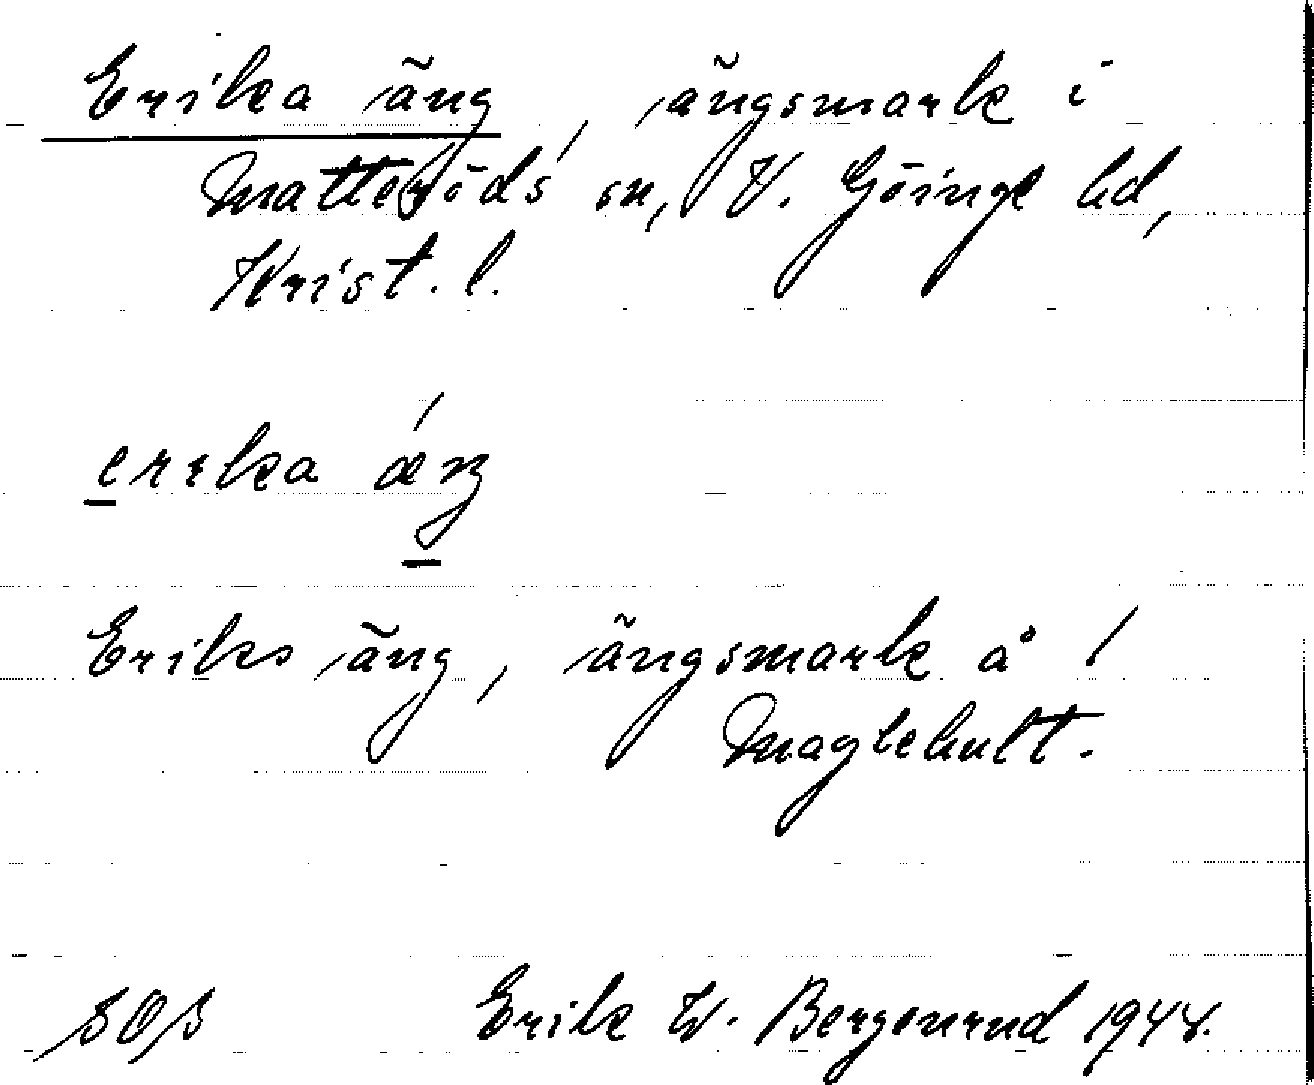 Erika äng, ängsmark i
Matteröds sn, V. Göinge hd,
Krist. l.
erıka ǽŋ
Eriks äng, ängsmark å
Maglehult.
SOS Erik W. Bergenrud 1944.